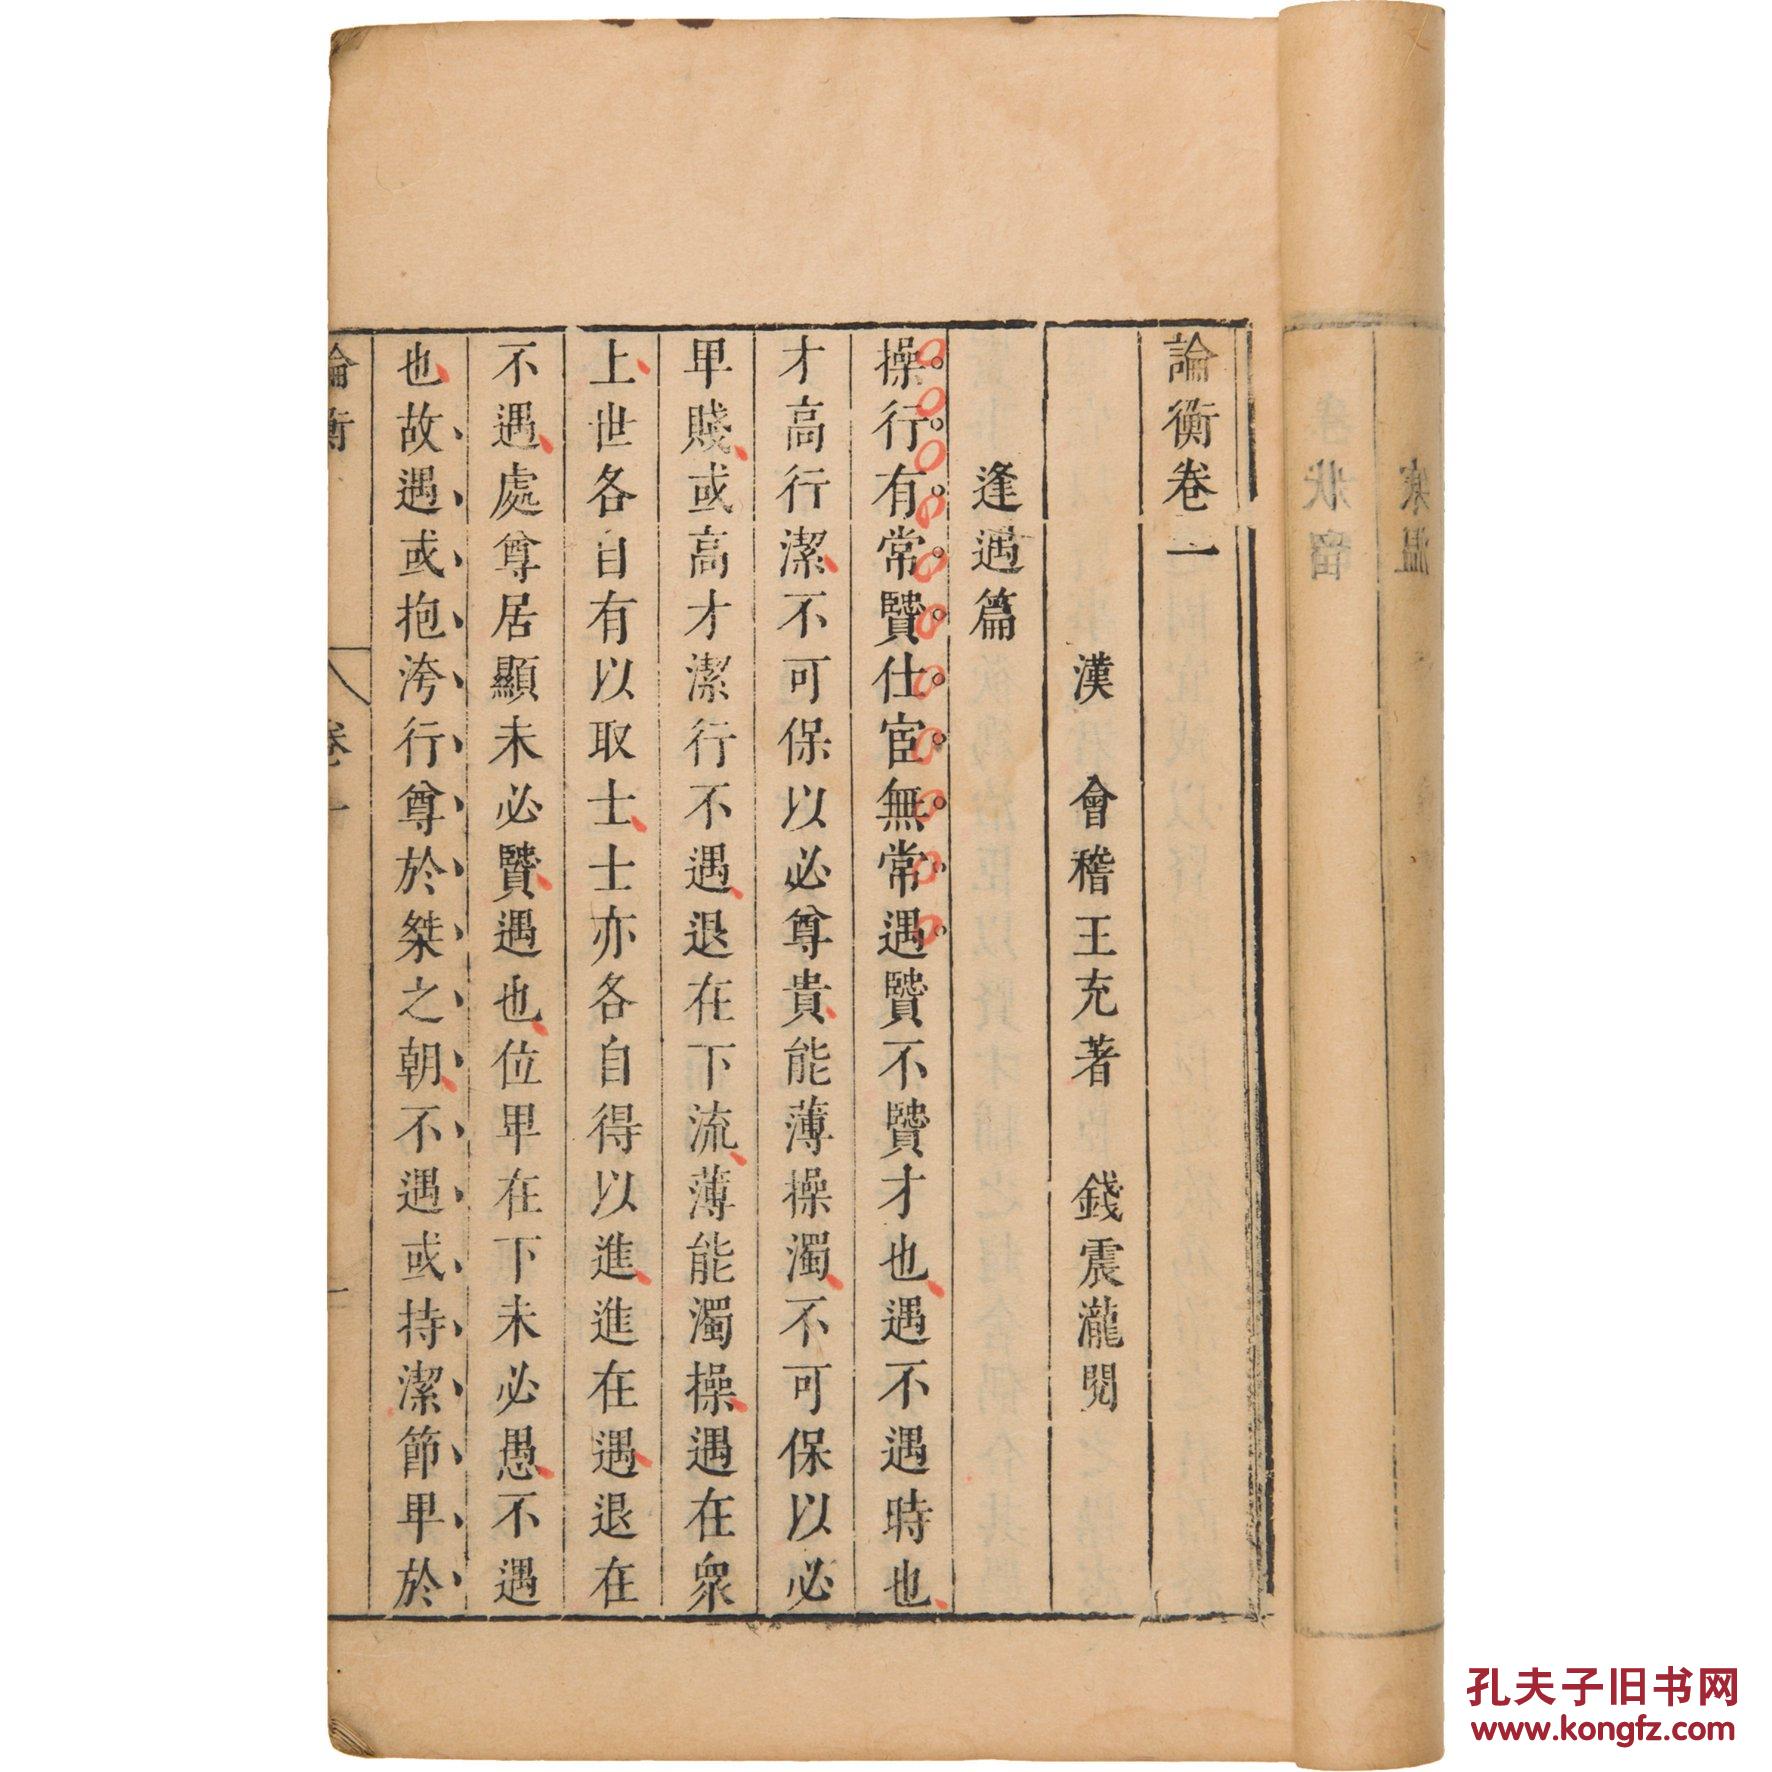 論衡卷一
漢　會稽王充著　錢震瀧閱
逢遇篇
操行有常賢仕宦無常遇賢不賢才也遇不遇時也
才高行潔不可保以必尊貴能薄操濁不可保以必
卑賤或高才潔行不遇退在下流薄能濁操遇在衆
上世各自有以取士士亦各自得以進進在遇退在
不遇處尊居顯未必賢遇也位卑在下未必愚不遇
也故遇或抱洿行尊於桀之朝不遇或持潔節卑於
論衡　卷一　一
孔夫子旧书网
www.kongfz.com